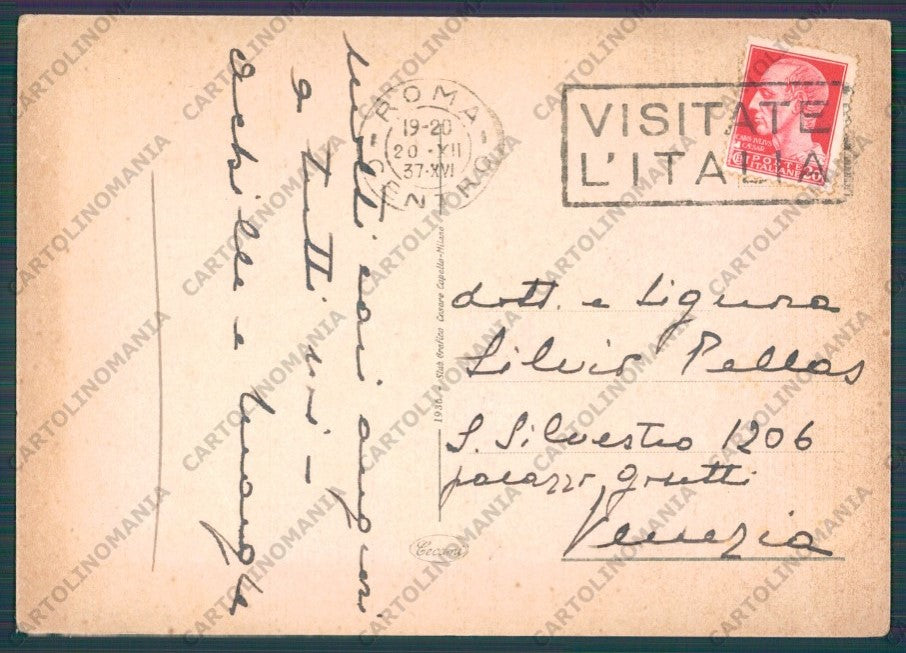 molti cari auguri
a tutti voi -
Achille e
ROMA
CENTRO
19-20
20·XII
37·XVI
VISITATE
L'ITALIA
CAIVS IVLIVS
CAESAR
POSTE
ITALIANE
20
dott. e Signora
Silvio Pellas
S. Silvestro 1206
palazzo Giusti
Venezia
1936 - Stab. Grafico Cesare Capello-Milano
Cecami
CARTOLINOMANIA